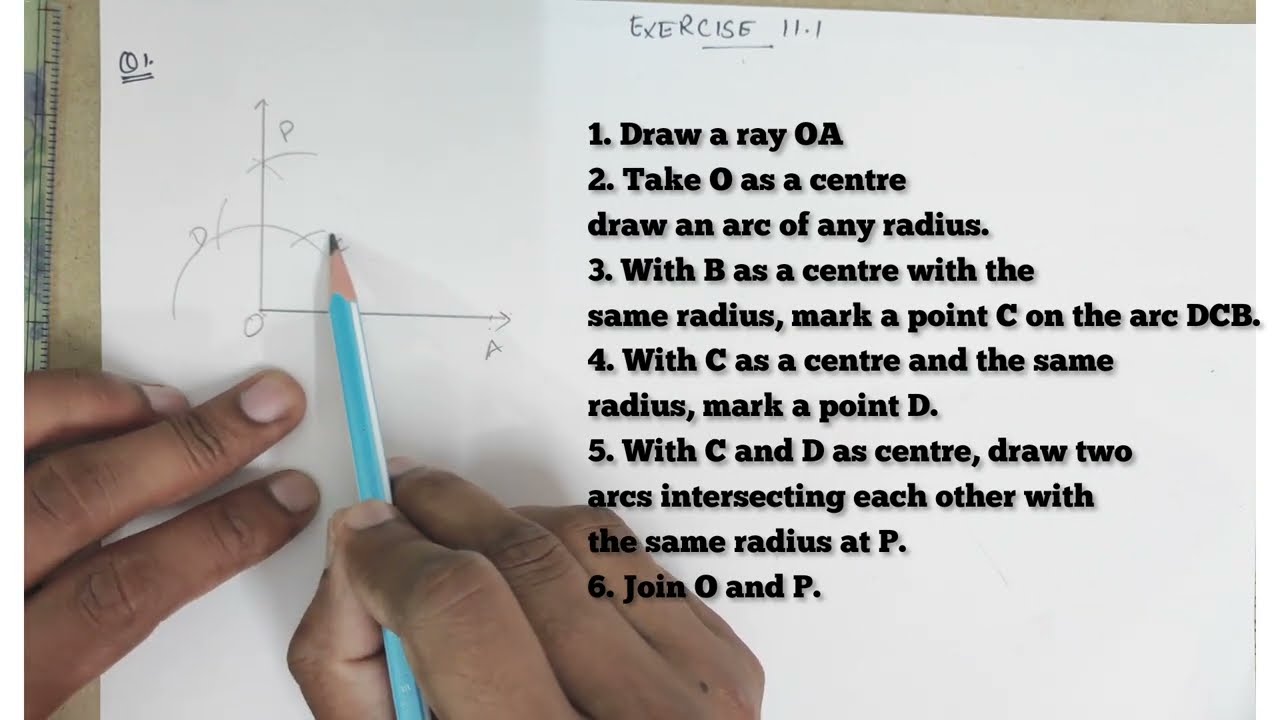 EXERCISE 11.1
Q1.
P
D
C
O
A
1. Draw a ray OA
2. Take O as a centre
draw an arc of any radius.
3. With B as a centre with the
same radius, mark a point C on the arc DCB.
4. With C as a centre and the same
radius, mark a point D.
5. With C and D as centre, draw two
arcs intersecting each other with
the same radius at P.
6. Join O and P.